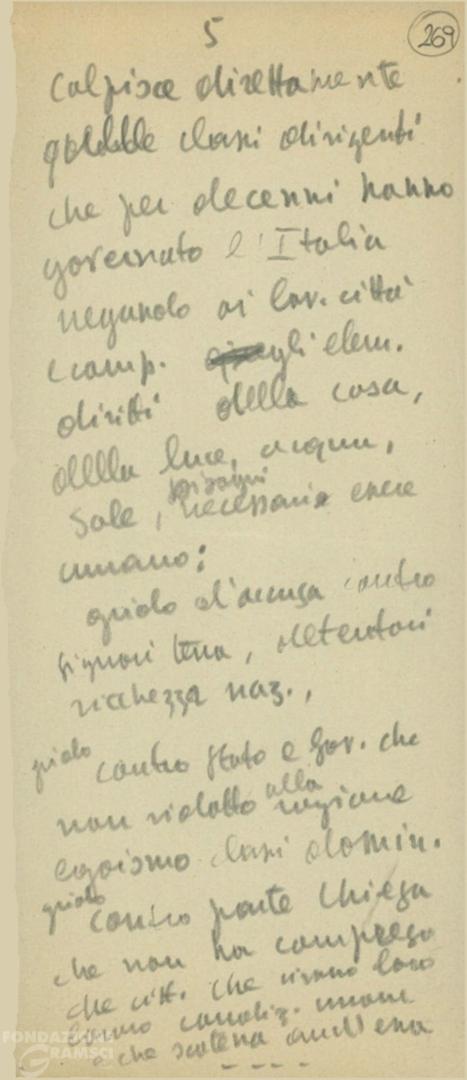 5
269
Colpisce direttamente
quelle classi dirigenti
che per decenni hanno
governato l'Italia
negando ai lav. città
e camp. gli elem.
diritti della casa,
della luce, acqua,
sole, bisogni necessari essere
umano:
grido d'accusa contro
signori terra, detentori
ricchezza naz.,
grido contro Stato e Gov. che
non ridotto alla ragione
egoismo classi domin.
grido contro parte Chiesa
che non ha compreso
che
che
FONDAZIONE
GRAMSCI